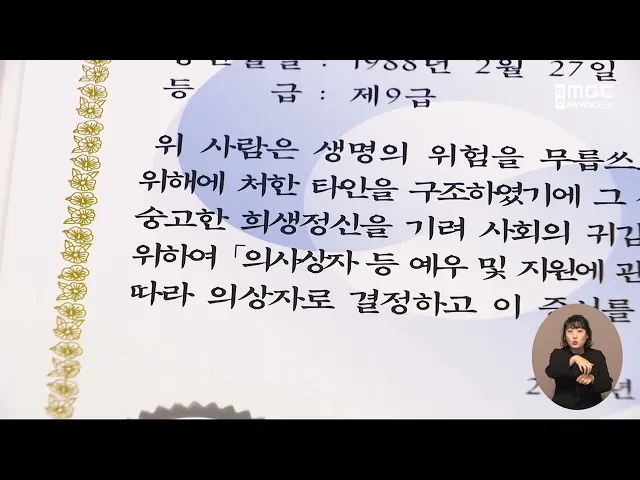 1988년 2월 27일
등 급 : 제9급
위 사람은 생명의 위험을 무릅쓰
위해에 처한 타인을 구조하였기에 그
숭고한 희생정신을 기려 사회의 귀감
위하여 「의사상자 등 예우 및 지원에 관
따라 의상자로 결정하고 이 증서를
2 년
MBC
NEWSDESK